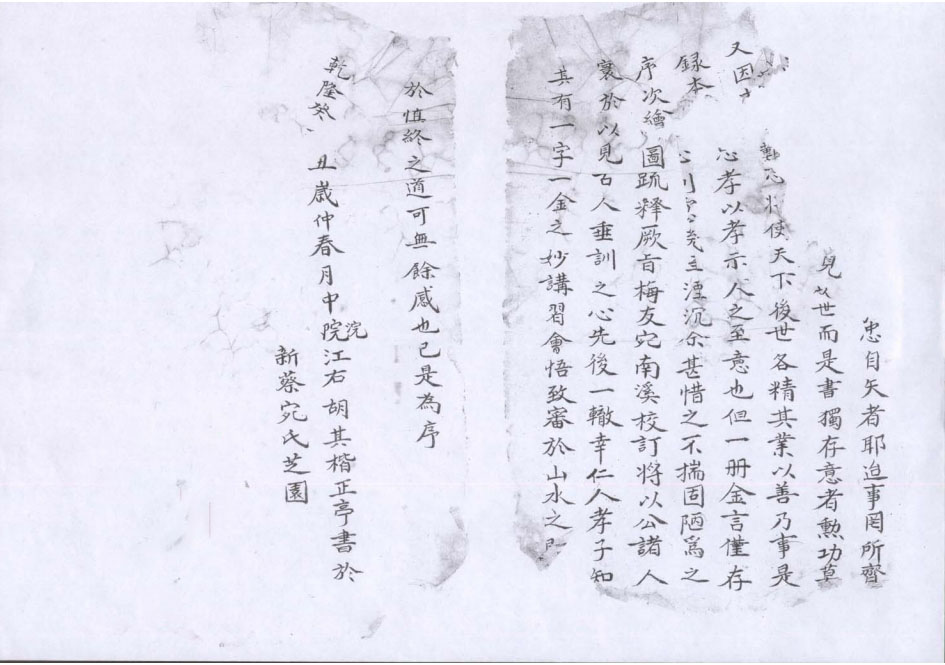 忠自矢者耶迨事罔所齊
見世而是書獨存意者勲功草
使天下後世各精其業以善乃事是
又因心孝以孝示人之至意也但一册金言僅存
録本湮沉余甚惜之不揣固陋爲之
序次繪圖疏釋厥旨梅友宛南溪校訂將以公諸人
寰於以見古人垂訓之心先後一轍幸仁人孝子知
其有一字一金之妙講習會悟致審於山水之
於慎終之道可無餘慼也已是為序
乾隆丑歲仲春月中院浣江右胡其楷正亭書於
新蔡宛氏芝園